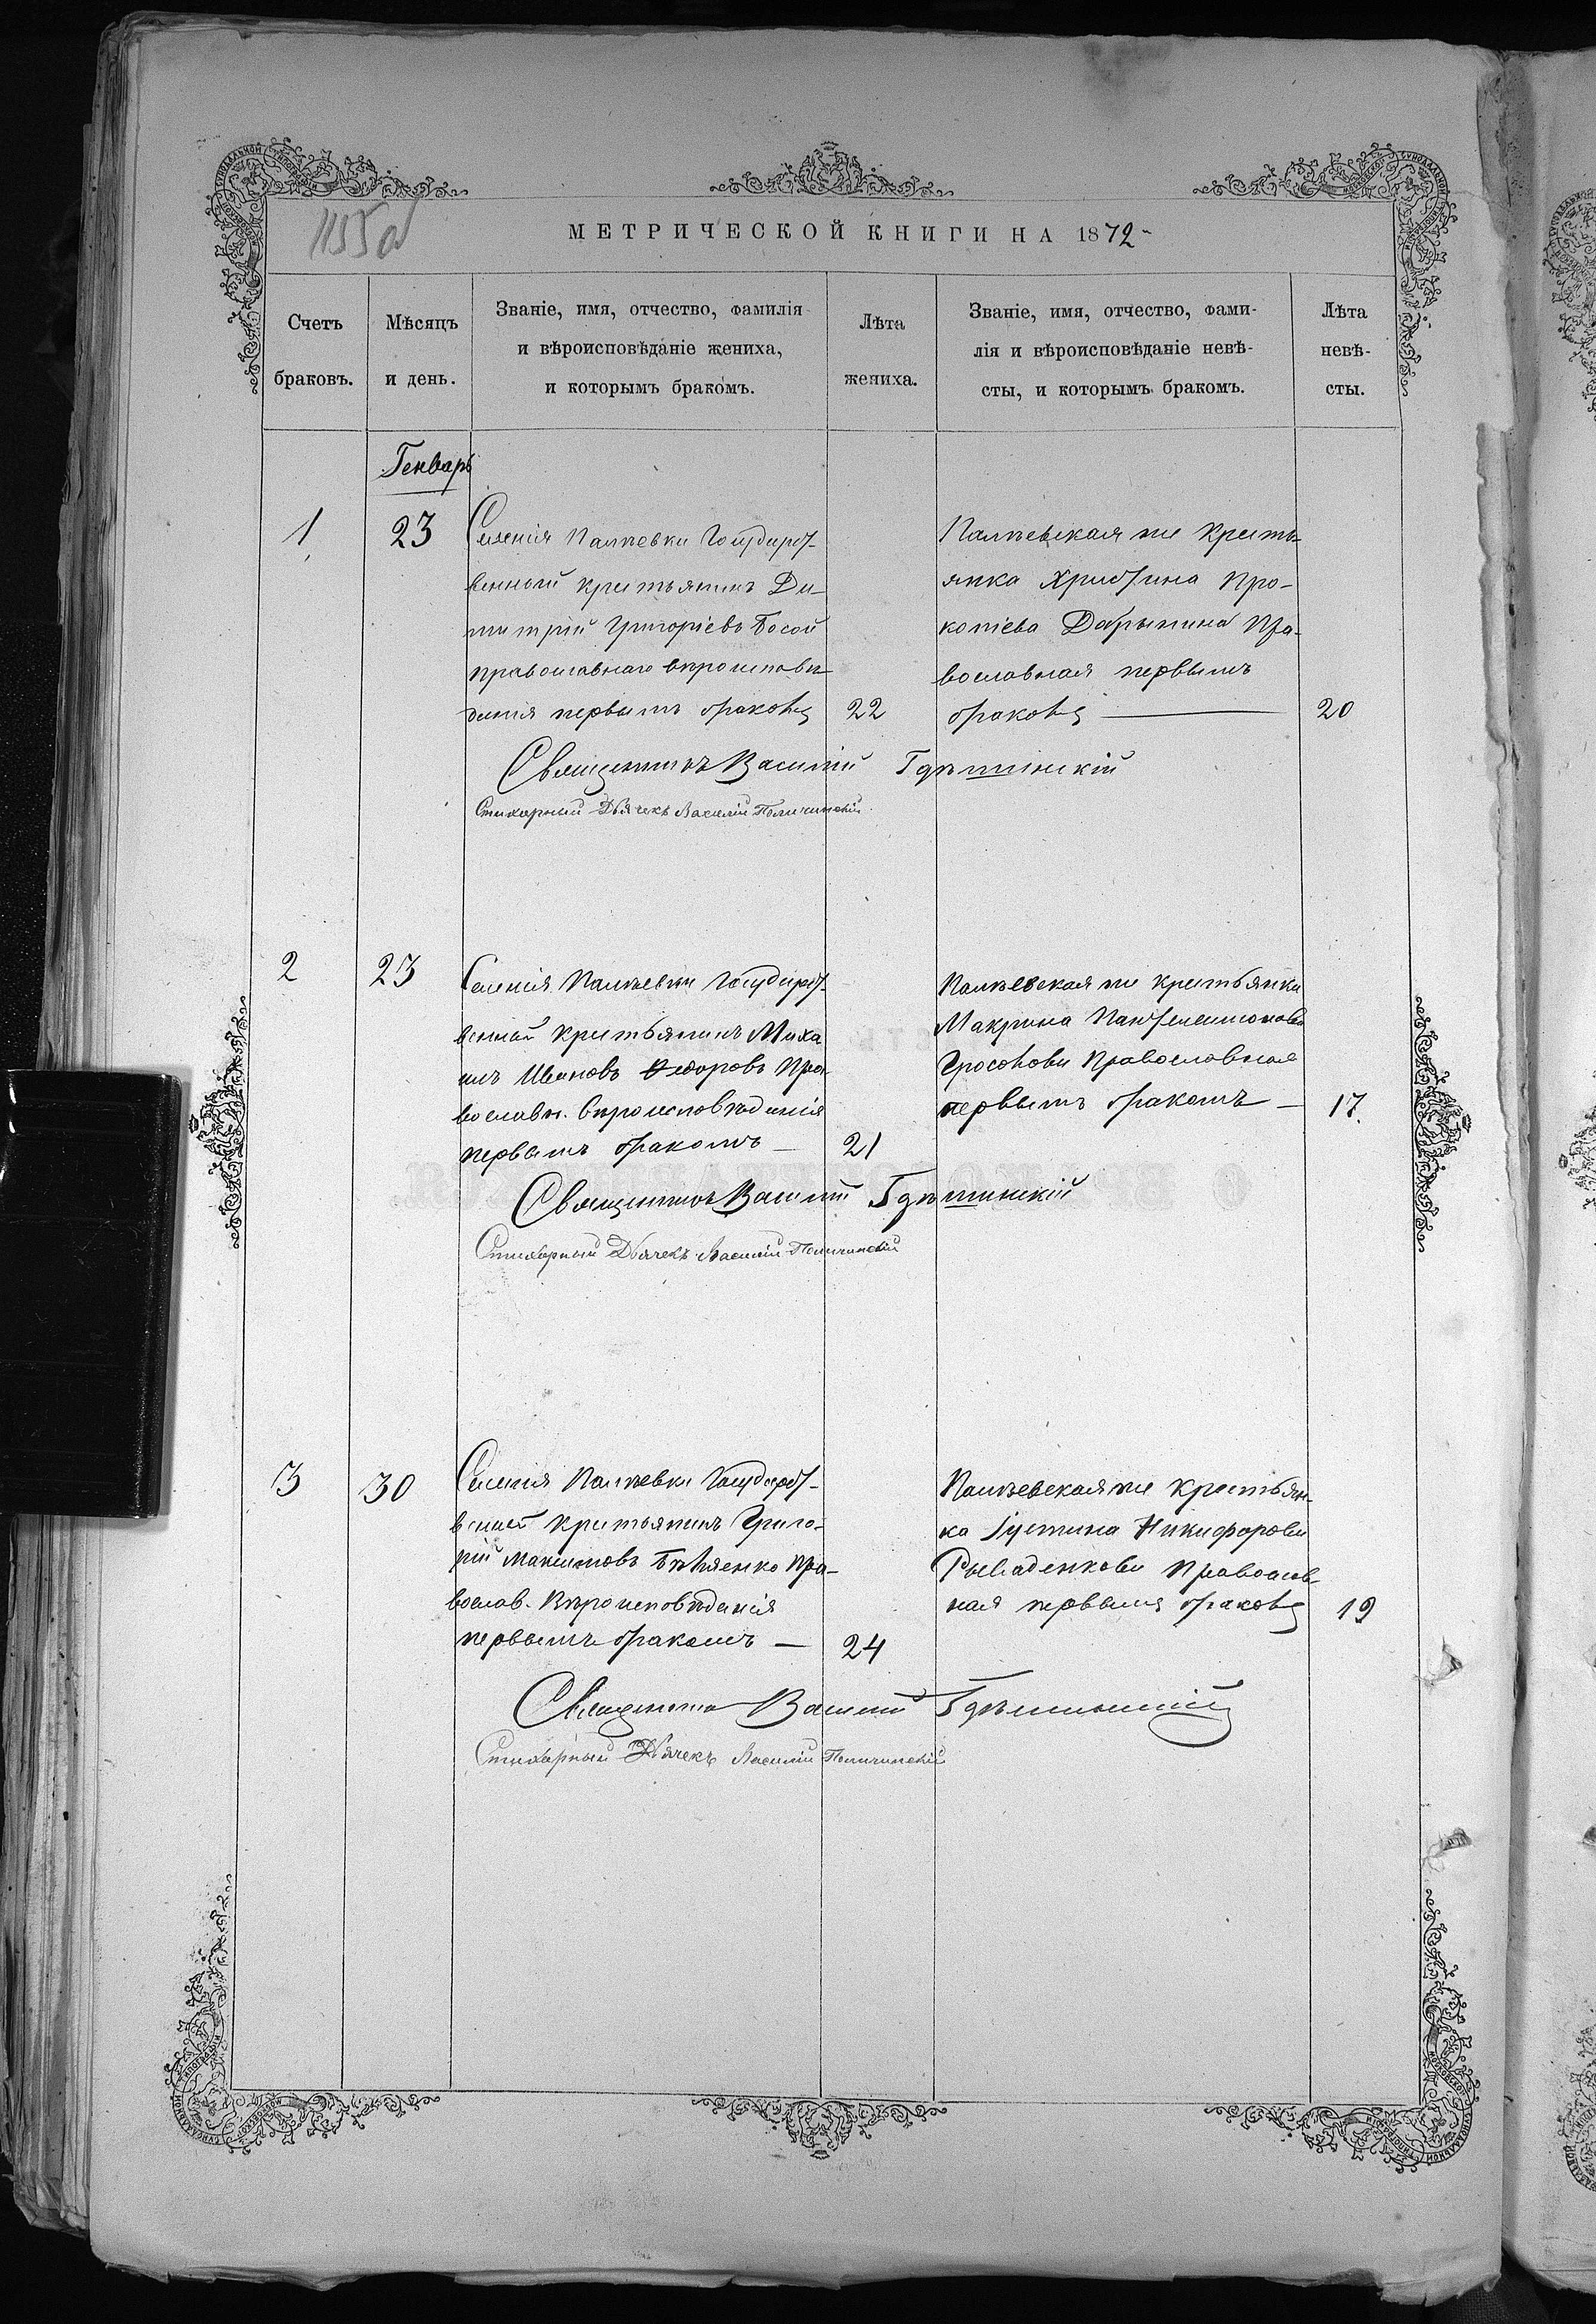 МЕТРИЧЕСКОЙ КНИГИ НА 1872
Счетъ
браковъ.
Мѣсяцъ
и день.
Званіе, имя, отчество, фамилія
и вѣроисповѣданіе жениха,
и которымъ бракомъ.
Лѣта
жениха.
Званіе, имя, отчество, фами-
лія и вѣроисповѣданіе невѣ-
сты, и которымъ бракомъ.
Лѣта
невѣ-
сты.
Генварь
1
23
Селенія Палѣевки Государст-
венный крестьянинъ Ди-
митрій Григоріевъ Босой
православнаго вѣроисповѣ-
данія первымъ бракомъ
22
Палѣевская же Кресть-
янка Христина Про-
копіева Пра-
вославная первымъ
бракомъ
20
Священникъ Василій
Стихарный Дьячекъ Василій
2
23
Селенія Палѣевки Государст-
венный крестьянинъ Миха
илъ Ивановъ Ѳедоровъ Пра-
вославн. Вѣроисповѣданія
первымъ бракомъ
21
Палѣевская же крестьянка
Макрина Пантелеимонова
Православная
первымъ бракомъ
17.
Священникъ Василій
Стихарный Дьячекъ Василій
3
30
Селенія Палѣевки Государст-
венный крестьянинъ Григо-
рій Максимовъ Пра-
вослав. Вѣроисповѣданія
первымъ бракомъ
24
Палѣевская же крестьян-
ка Іустина Никифорова
Православ-
ная первымъ бракомъ
19
Священникъ Василій
Стихарный Дьячекъ Василій